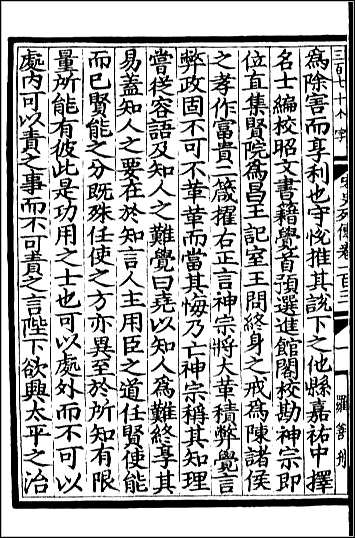 三百七十个字
宋史列傳卷一百三
一
爲除害而享利也守悅推其說下之他縣嘉祐中擇
名士編校昭文書籍覺首預選進館閣校勘神宗即
位直集賢院爲昌王記室王問終身之戒爲陳諸侯
之孝作富貴二箴擢右正言神宗將大革積弊覺言
弊政固不可不革革而當其悔乃亡神宗稱其知理
嘗從容語及知人之難覺曰堯以知人爲難終享其
易蓋知人之要在於知言人主用臣之道任賢使能
而已賢能之分既殊任使之方亦異至於所知有限
量所能有彼此是功用之士也可以處外而不可以
處內可以責之事而不可責之言陛下欲興太平之治